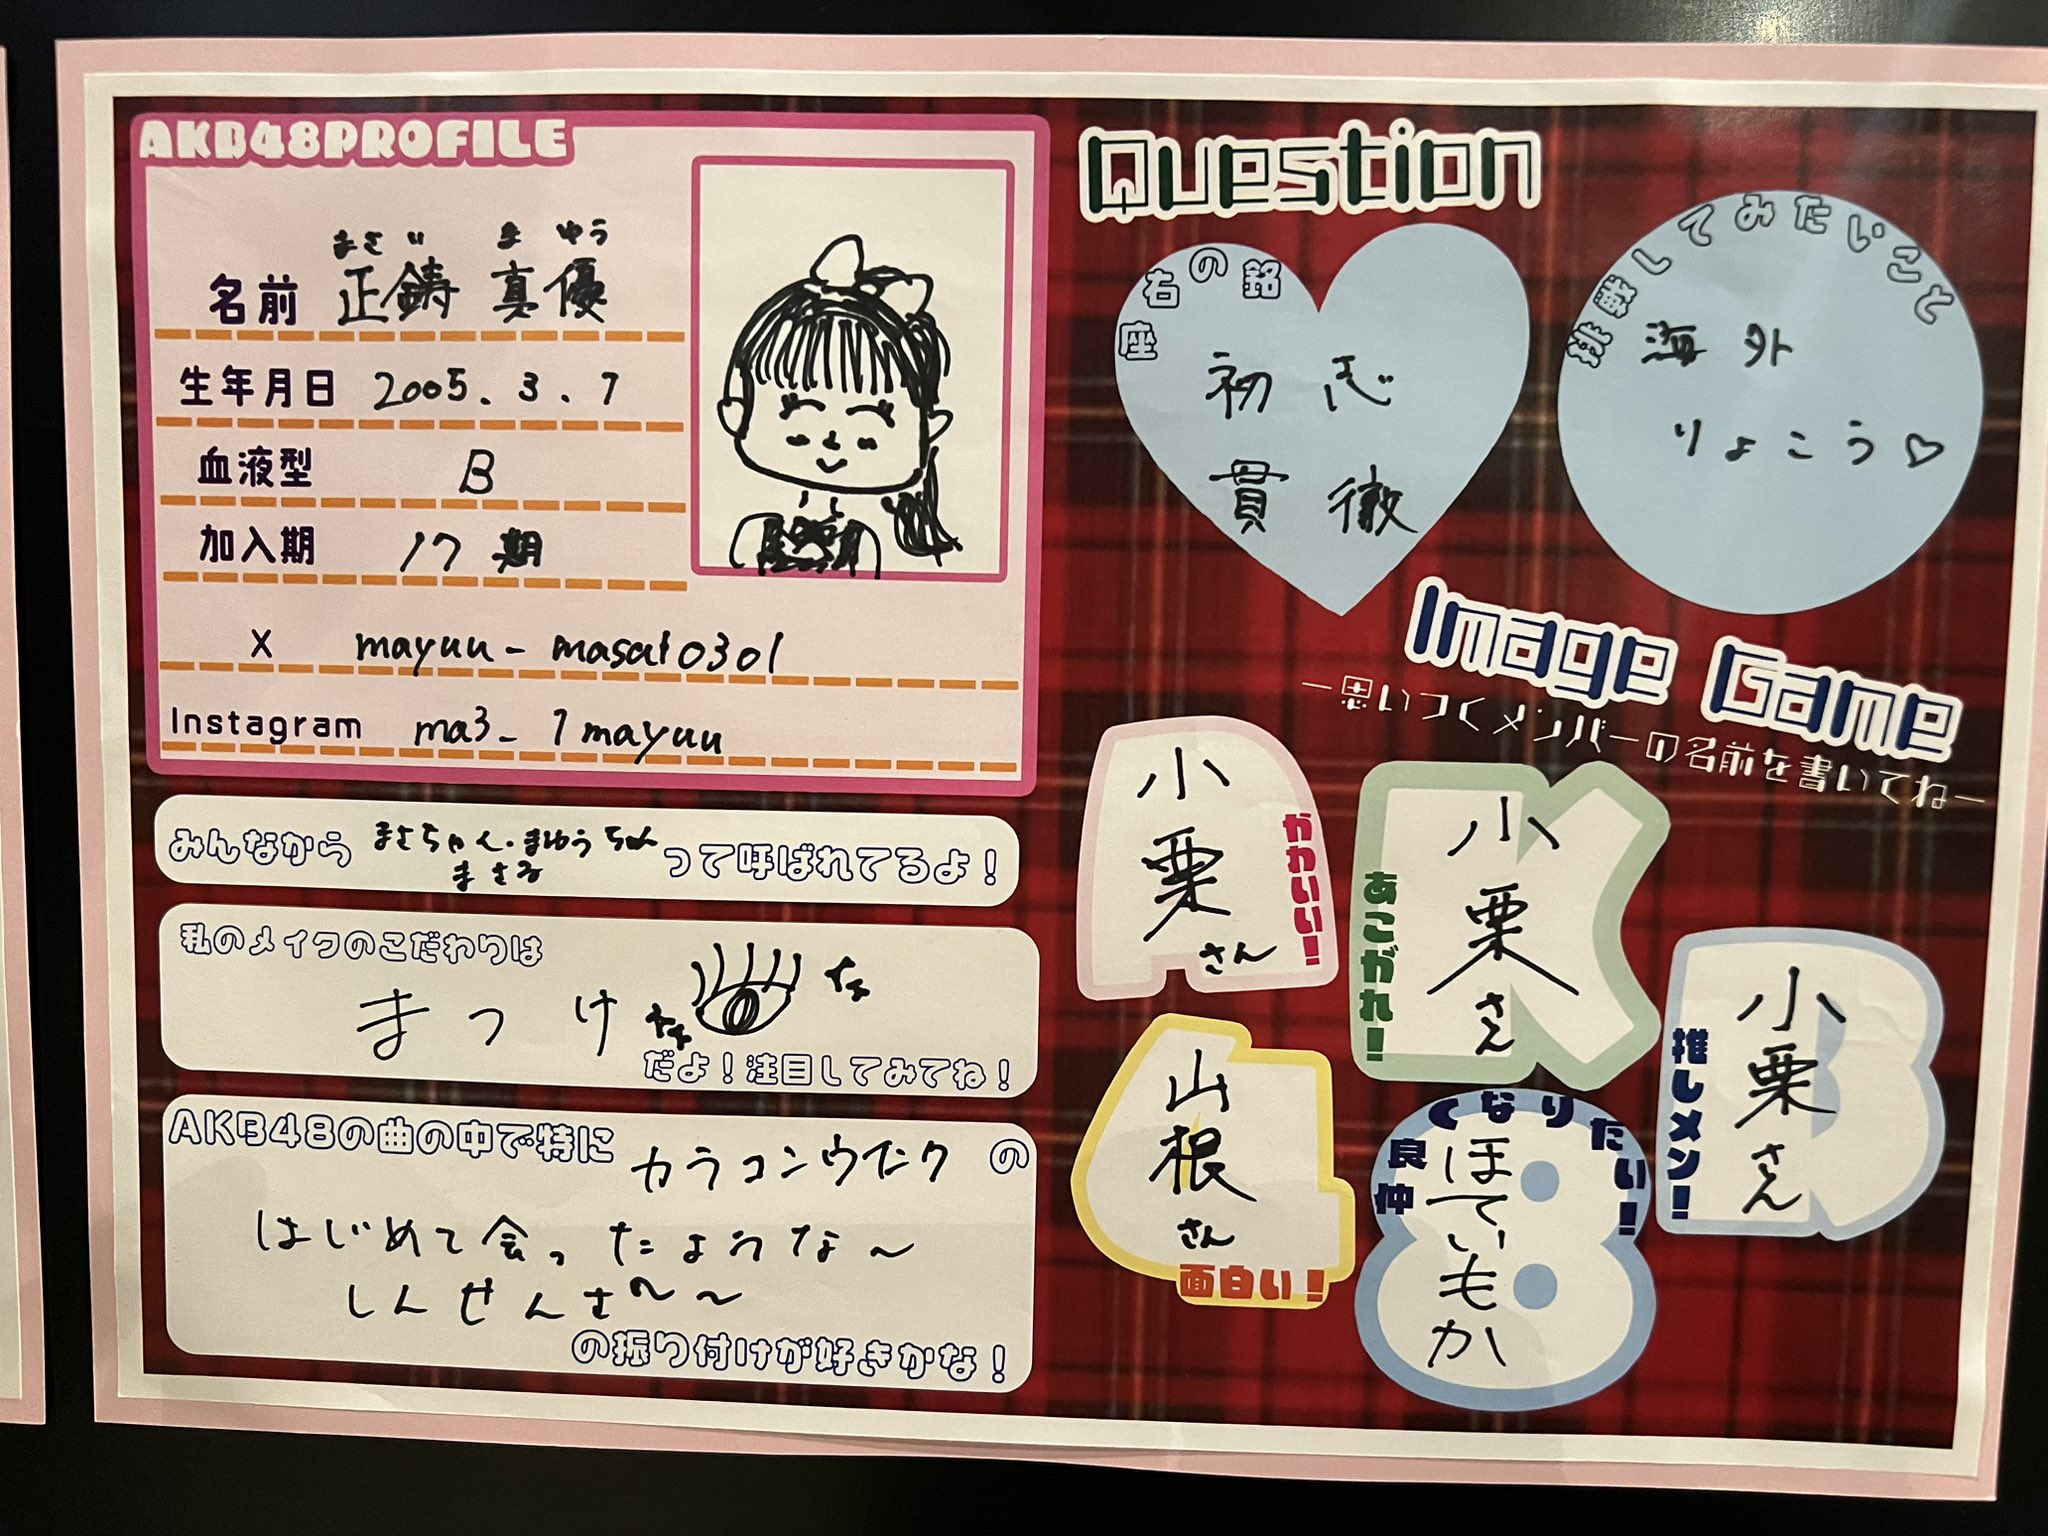 AKB48PROFILE
まさい まゆう
名前 正鋳 真優
生年月日 2005.3.7
血液型 B
加入期 17期
X mayuu_masai0301
Instagram ma3_1mayuu
みんなから まさちゃん・まゆうちゃん
まさる
って呼ばれてるよ!
私のメイクのこだわりは
まつげ
だよ!注目してみてね!
AKB48の曲の中で特に カラコンウインク の
はじめて会ったような〜
しんせんさ〜〜
の振り付けが好きかな!
Question
座右の銘
初志
貫徹
挑戦してみたいこと
海外
りょこう♡
Image Game
ー思いつくメンバーの名前を書いてねー
かわいい!
小栗さん
あこがれ!
小栗さん
推しメン!
小栗さん
山根さん
面白い!
仲良くなりたい!
ほていもか